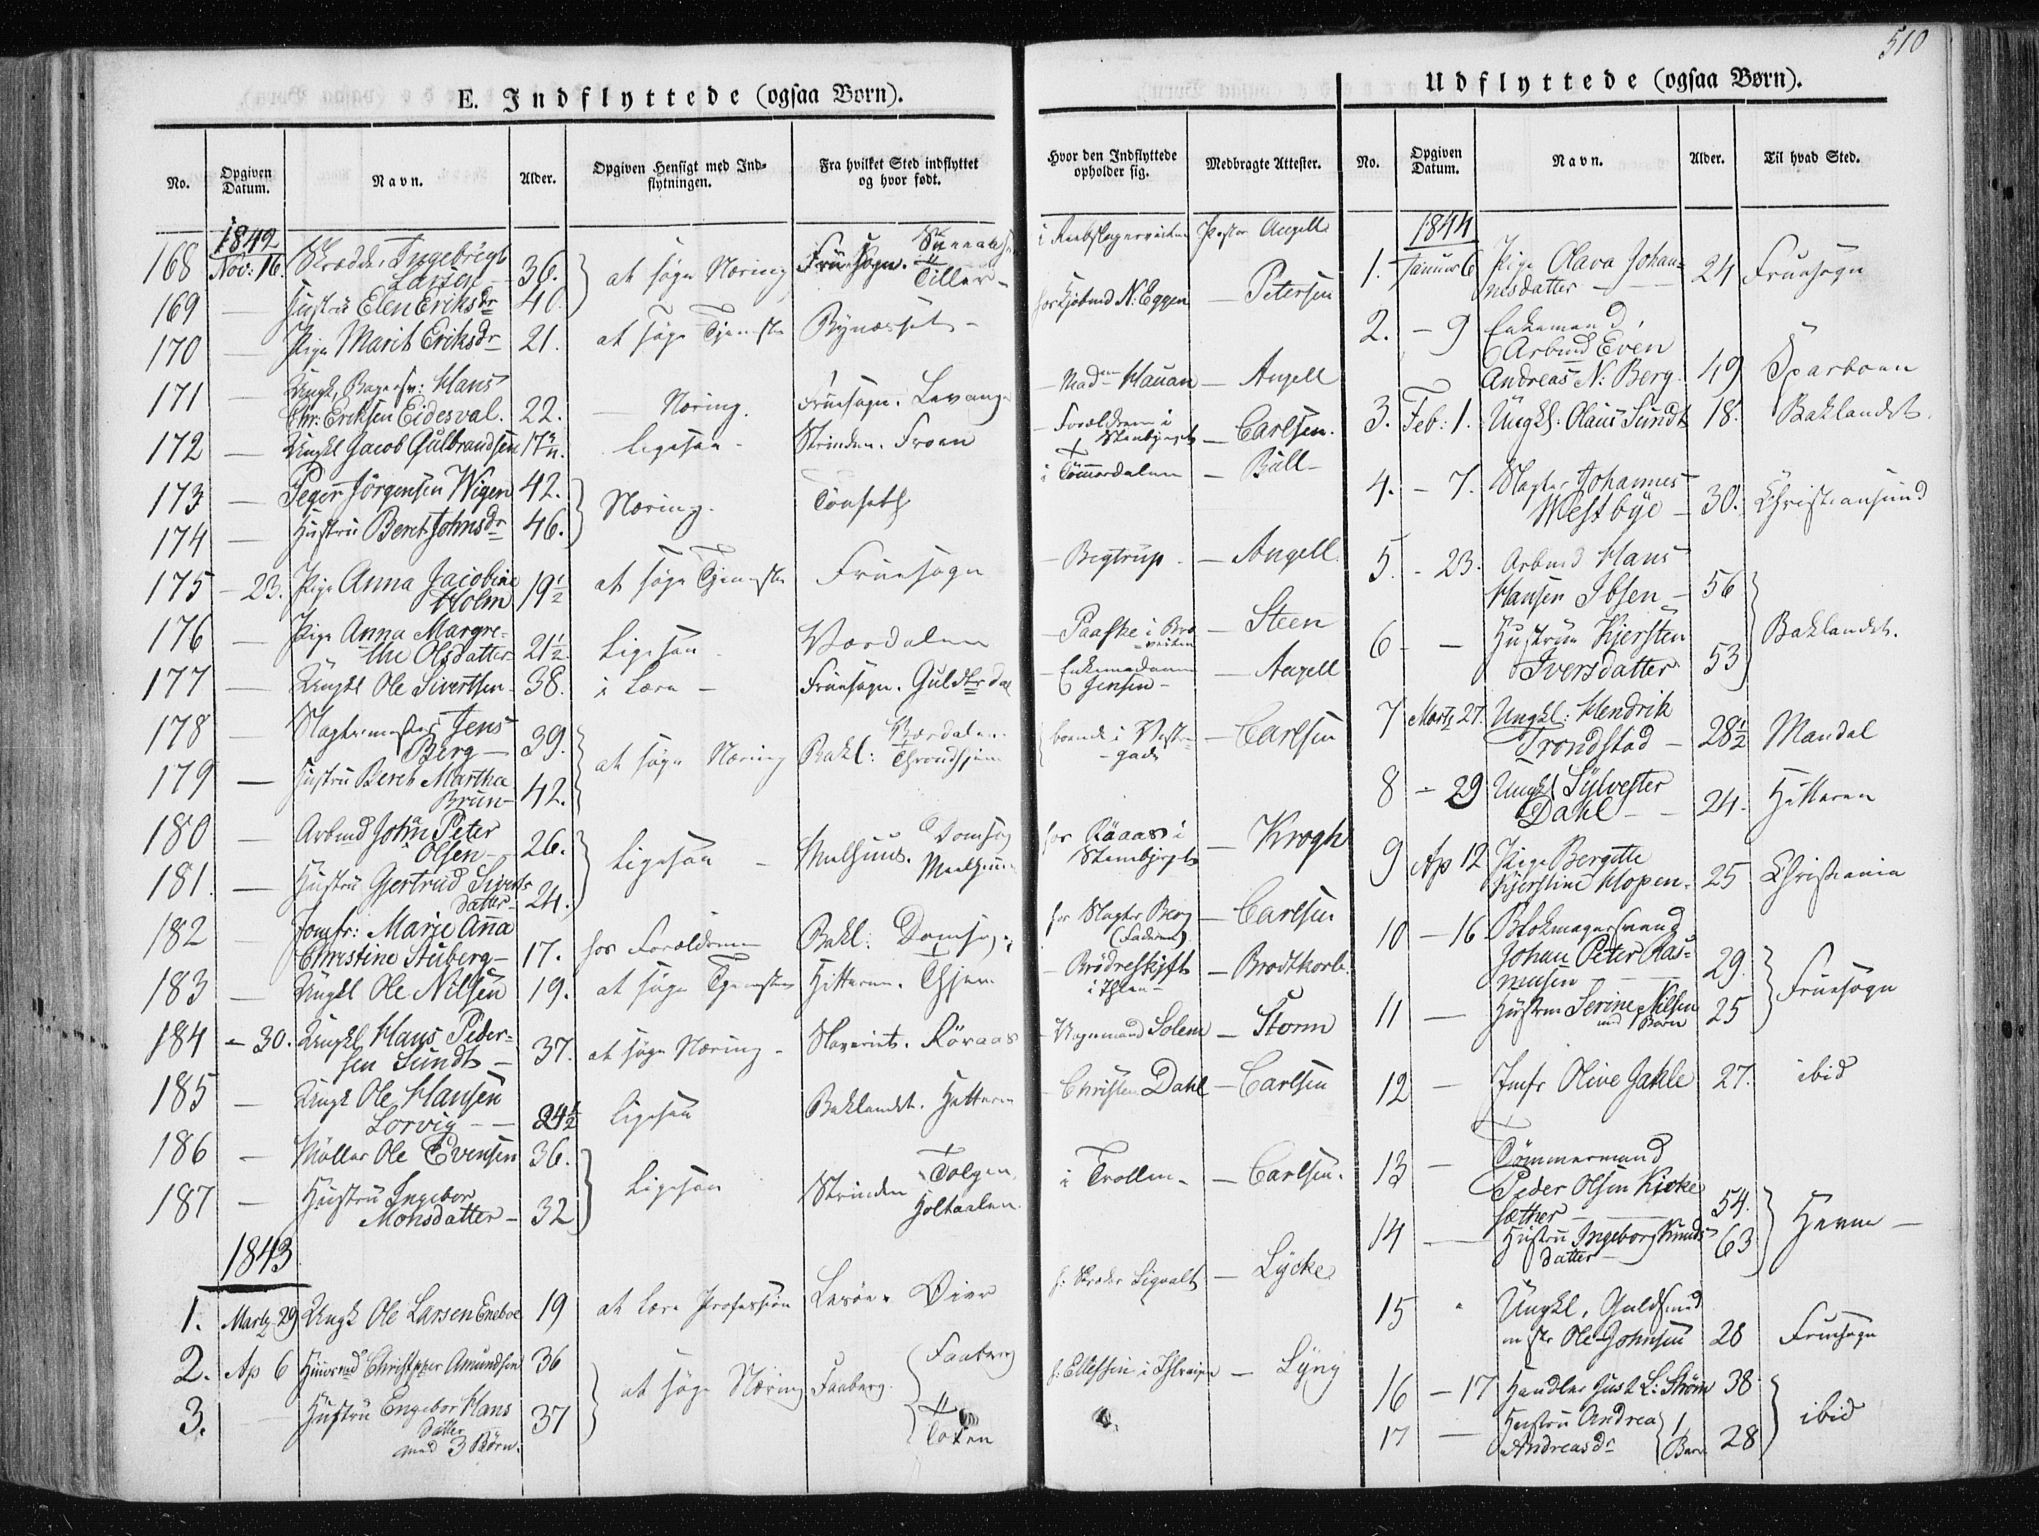 510
E. Indflyttede (ogsaa Børn).
No. Opgiven Datum. Navn. Alder. Opgiven Hensigt med Indflytningen. Fra hvilket Sted indflyttet og hvor født. Hvor den Indflyttede opholder sig. Medbragte Attester.
1842
168 Nov: 16. Skrædder Ingebrigt Larsen 36. at søge Næring Fruesogn. Tiller Pastor Angell
169 — Hustru Elen Eriksdr 40.
170 — Pige Marit Eriksdr 21. at søge Tjeneste Bynæsset - hos Kjøbmd N: Eggen — Petersen
171 — Ungk, Bagersv: Hans Chr: Eriksen Eidesval. 22. — Næring. Fruesogn. Levanger — Madm Hauan — Angell
172 — Ungkl Jacob Gulbrandsen ligesaa - Strinden. Froen — Forældrene i Steenbjerget — Carlsen.
173 — Peger Jörgensen Wigen 42. Næring. Tönseth i Tömmerdalen — Bull
174 — Hustru Beret Johnsdr 46.
175 - 23. Pige Anna Jacobine Holm 19½ at søge Tjeneste Fruesogn — Begtrup. — Angell.
176 — Pige Anna Margrethe Olsdatter 21½ Ligesaa - Værdalen — Paaske i — Steen
177 — Ungkl Ole Sivertsen - 38. i Lære - Fruesogn. Guldbrdal — Enkemadame Jensen - — Angell
178 — Slagtermester Jens Berg — 39. at søge Næring Bakl: Værdalen. boende i Vestgade — Carlsen
179 — Hustru Bereth Martha Brun 42. Throndhjem
180 — Arbmd John Peter Olsen 26. Ligesaa — Meelhuus. Domsog hos Röaas i Steenbjerget — Krogh
181. — Hustru Gjertrud Sivertsdatter 24. Meelhuus
182 — Jomfr: Marie Anna Christine Stuberg — 17. hos Forældrene Bakl: Domsog: hos Slagter Berg (Faderen) — Carlsen
183 — Ungkl Ole Nilsen 19. at søge Tjeneste Hitteren. — Brödreskift i Ihlen — — Brodtkorb.
184 - 30. Ungkl Hans Pedersen Sundt — 37. at søge Næring - Slaveriet. Röraas — Vognmand Solem — Storm
185 — Ungk Ole Hansen Lorvig — 24½ ligesaa Baklandet. Hitteren — Christen Dahl — Carlsen
186 — Møller Ole Evensen 36. Ligesaa Strinden Tolgen i Trollen - — Carlsen.
187 — Hustru Ingebor Monsdatter — 32 Holtaalen
1843
1. Martz 29 Ungk Ole Larsen Eneboe 19 at lære Profession Lesöe. Öier h: Skræder Sigvalt — Lycke
2. Ap 6 Huusmd Christopher Amundsen 36 at søge Næring Faaberg. Faaberg h: Ellefsen i — Lyng
3. Hustru Engebor Hansdatter med 3 Børn. 37 Toten
Udflyttede (ogsaa Børn).
No. Opgiven Datum. Navn. Alder. Til hvad Sted.
1844
1. Januar 6 Pige Olava Johannesdatter — 24 Fruesogn
2. - 9 Enkemand, Arbmd Even Andreas N: Berg. 49 Sparboen
3. Feb: 1. Ungkl: Olaus Sundt 18. Baklandet.
4. - 7. Slagter Johannes Westbye — 30. Christiansund
5. - 23. Arbmd Hans Hansen Ibsen — 56 Baklandet.
6 - - Hustrue Kjersten Iversdatter 53
7 Martz 27. Ungkl: Hendrik Trondstad — 28½ Mandal
8 - 29 Ungkl Sylvester Dahl — 24. Hitteren
9 Ap 12 Pige Bergitte Kjerstine Hopen. 25 Christiania
10 — 16 Blokmagersvend Johan Peter Rasmusen — 29. Fruesogn
11 — Hustru Serine Nilsen med 1 Barn 25
12 — Jmfr Olive Gahle 27. ibid
13 — Tömmermand Peder Olsen Kirkesæther — 54. Hevne —
14 — Hustru Ingeborg Knudsdatter — 63
15 " Ungkl, Guldsmed Ole Johnsen 28 Fruesogn
16 — 17 Handler Just L: Strøm 38 ibid
17 — Hustru Andrea Andreasdr 1 Barn 28